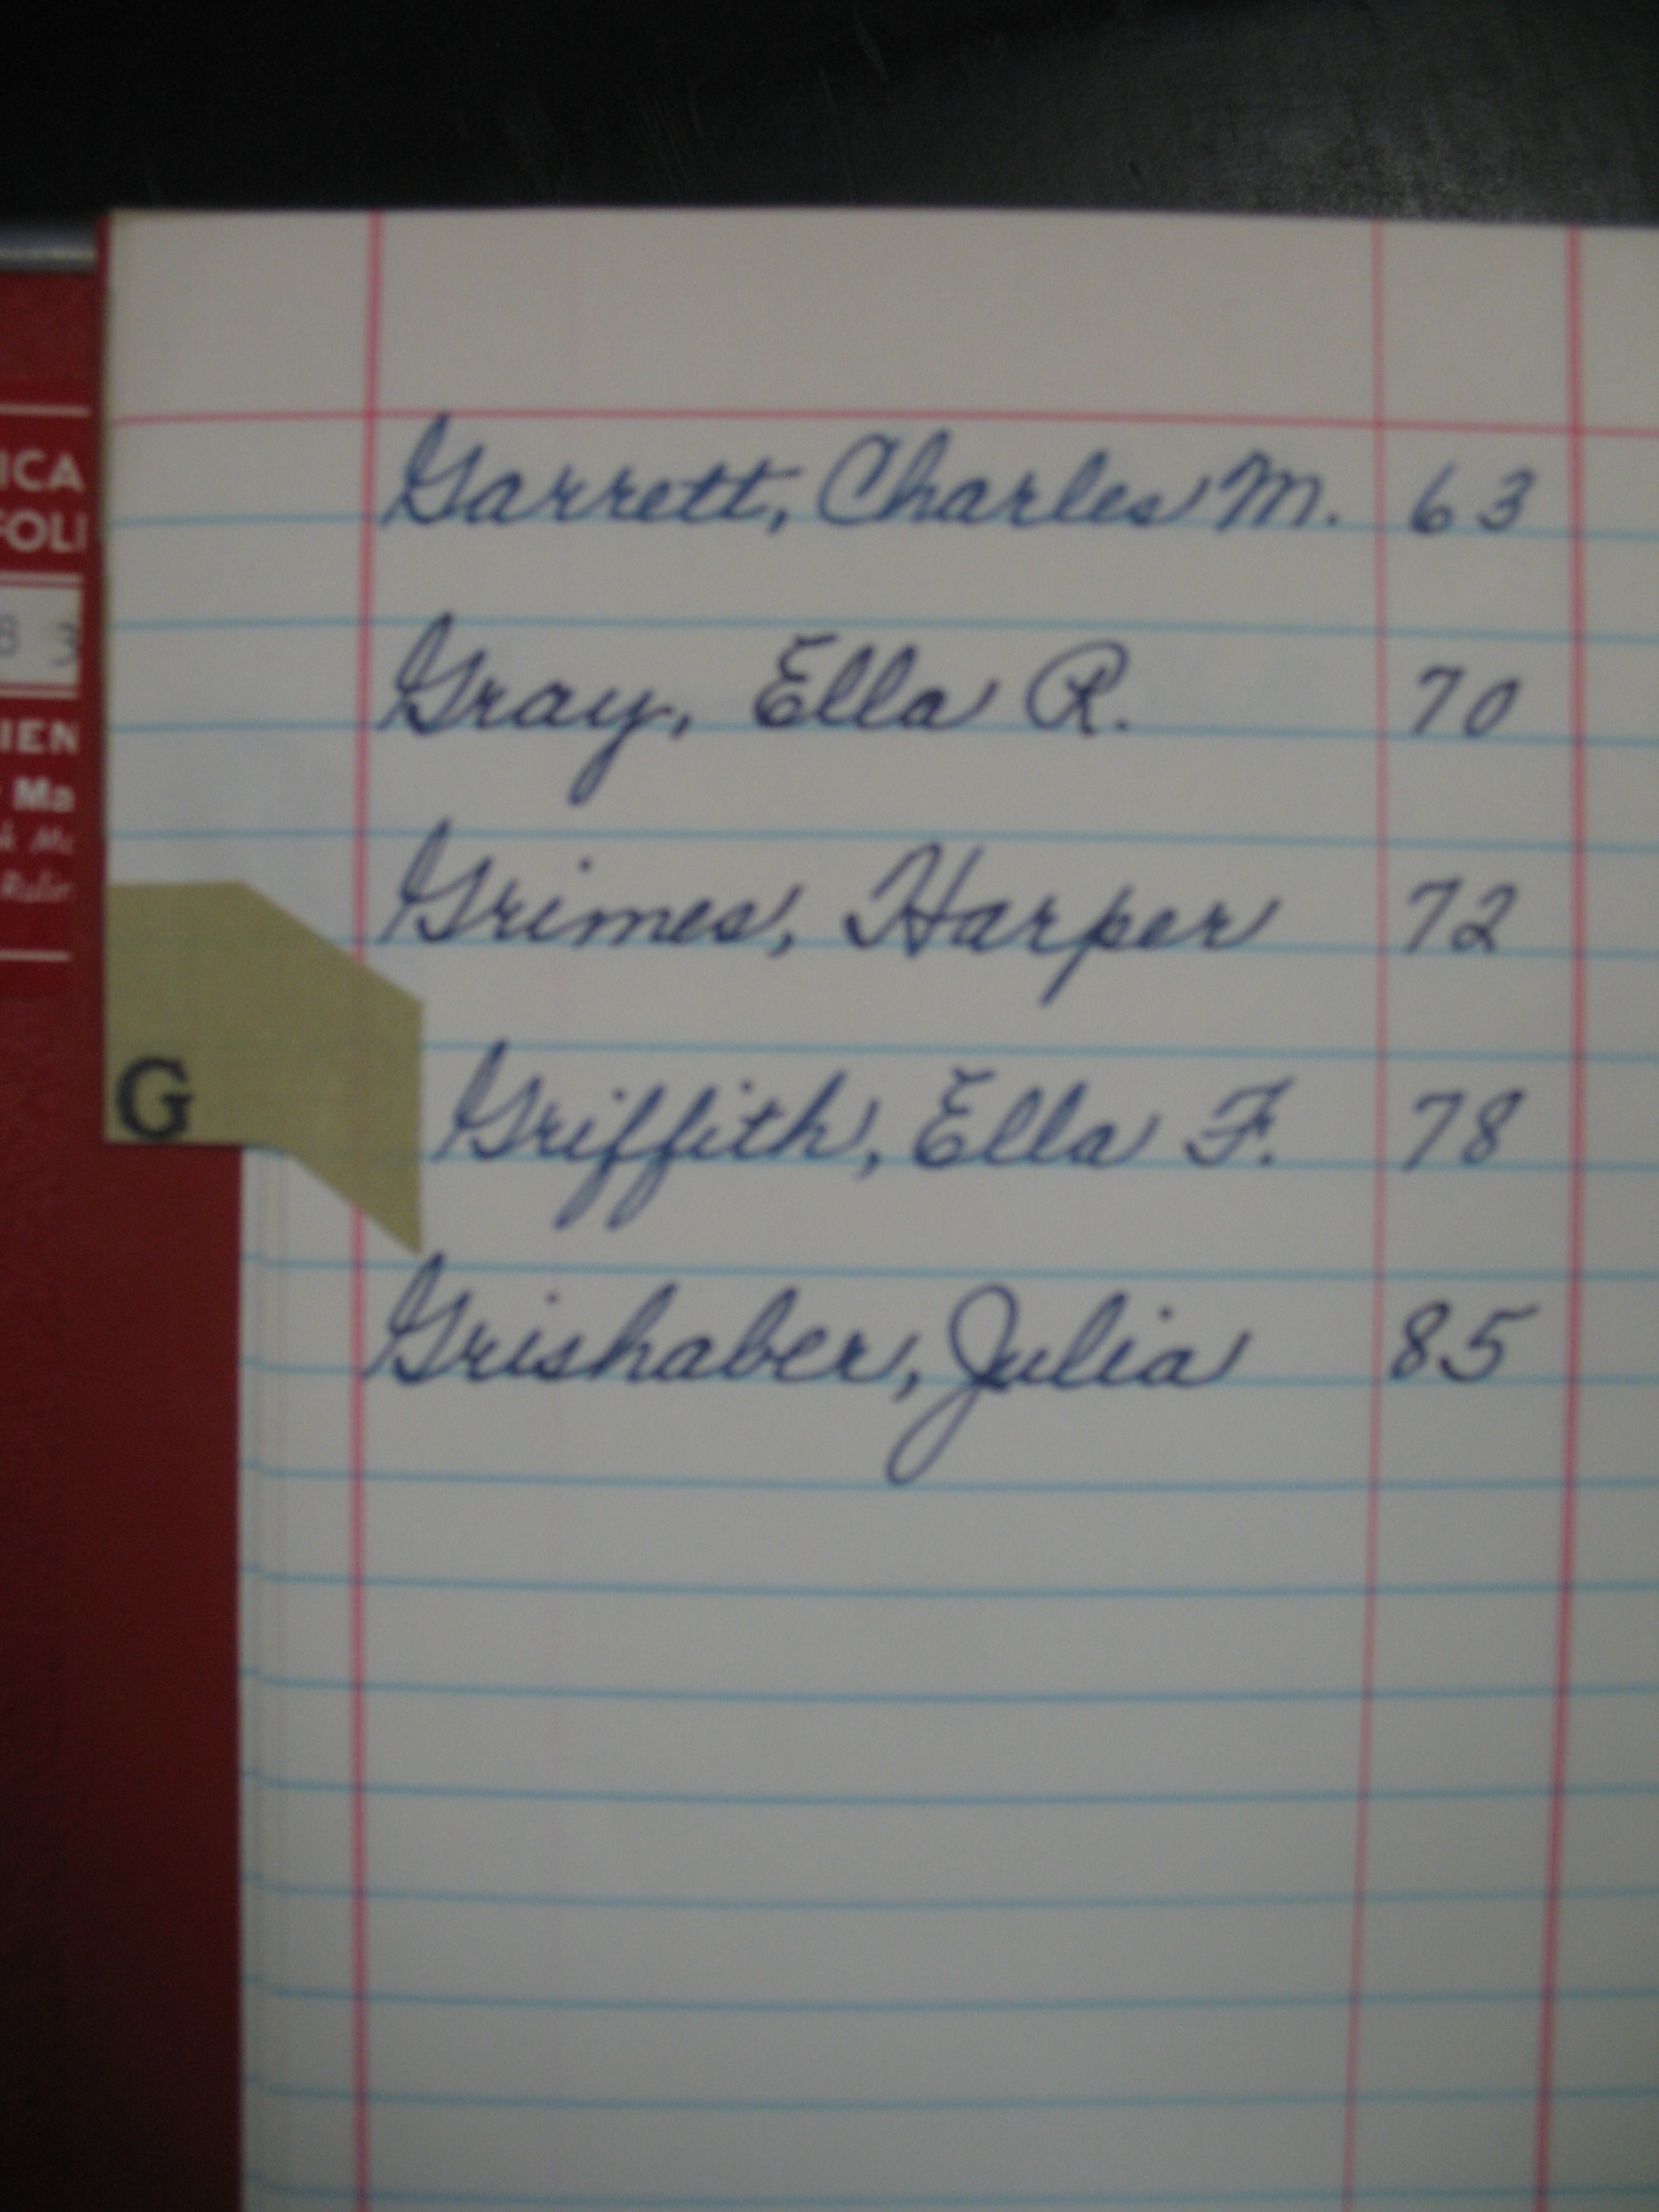 ICA
FOLI
8 3
IEN
Ma
k Mc
Garrett, Charles M. 63
Gray, Ella R. 70
Grimes, Harper 72
G
Griffith, Ella F. 78
Grishaber, Julia 85